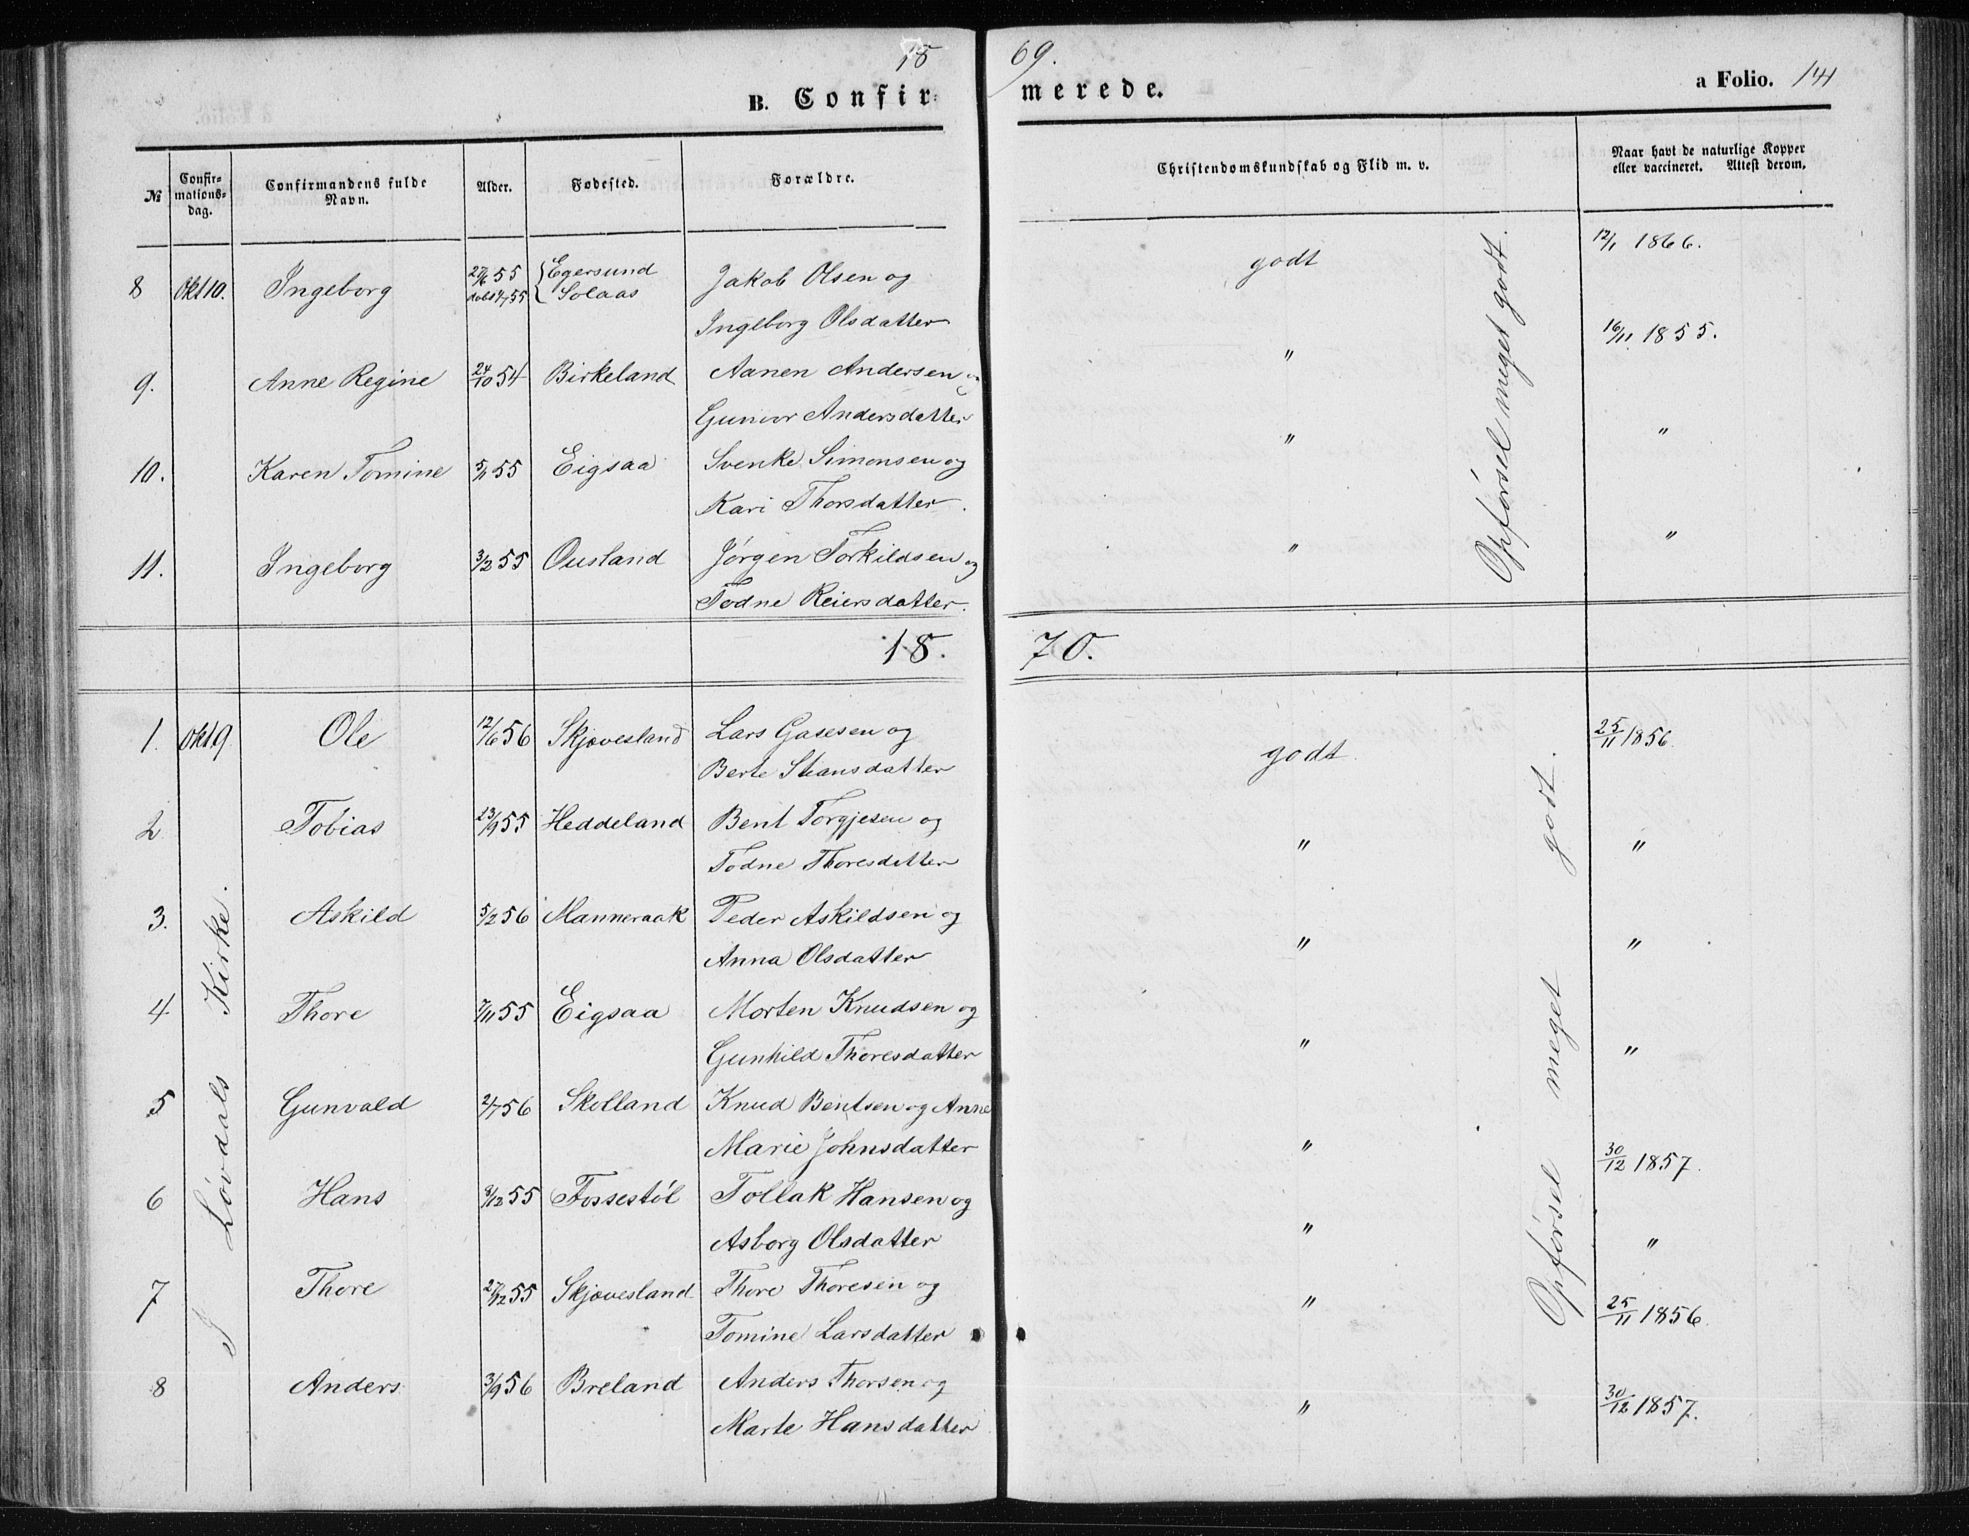 18 69.
B. Confir- merede. a Folio. 141
№ Confir-mations-dag. Confirmandens fulde Navn. Alder. Fødested. Forældre. Christendomskundskab og Flid m. v. Naar havt de naturlige Kopper eller vaccineret. Attest derom.
8 Okt 10. Ingeborg 27/6 55 Egersund Jakob Olsen og godt 12/1 1866.
Solaas
Ingeborg Olsdatter
9. Anne Regine 24/10 54 Birkeland Aanen Andersen og " 16/11 1855.
Gunvor Andersdatter
10. Karen Tomine 55 Eigsaa Svenke Simonsen og " "
Kari Thorsdatter.
11. Ingeborg 3/2 55 Ousland Jørgen Torkildsen og " "
Todne Reiersdatter.
Opførsel meget godt.
18. 70.
1. Okt 9 Ole 12/6 56 Skjævesland Lars Gasesen og godt. 25/11 1856.
Berte Stiansdatter
2 Tobias 23/9 55 Heddeland Bent Torgjesen og " "
Todne Thoresdatter
3. Askild 5/2 56 Manneraak Peder Askildsen og " "
Anna Olsdatter
4 Thore 7/11 55 Eigsaa Morten Knudsen og " "
Gunhild Thoresdatter
5 Gunvald 2/7 56 Skolland Knud Bentsen og Anne " 30/12 1857.
Marie Johnsdatter
6 Hans 8/12 55 Fossestöl Tollak Hansen og " "
Asborg Olsdatter
7 Thore 27/12 55 Skjævesland Thore Thoresen og " 25/11 1856
Tomine Larsdatter
8 Anders 3/9 56 Breland Anders Thorsen og " 30/12 1857.
Marte Hansdatter
I Løvdals Kirke.
Opførsel meget godt.